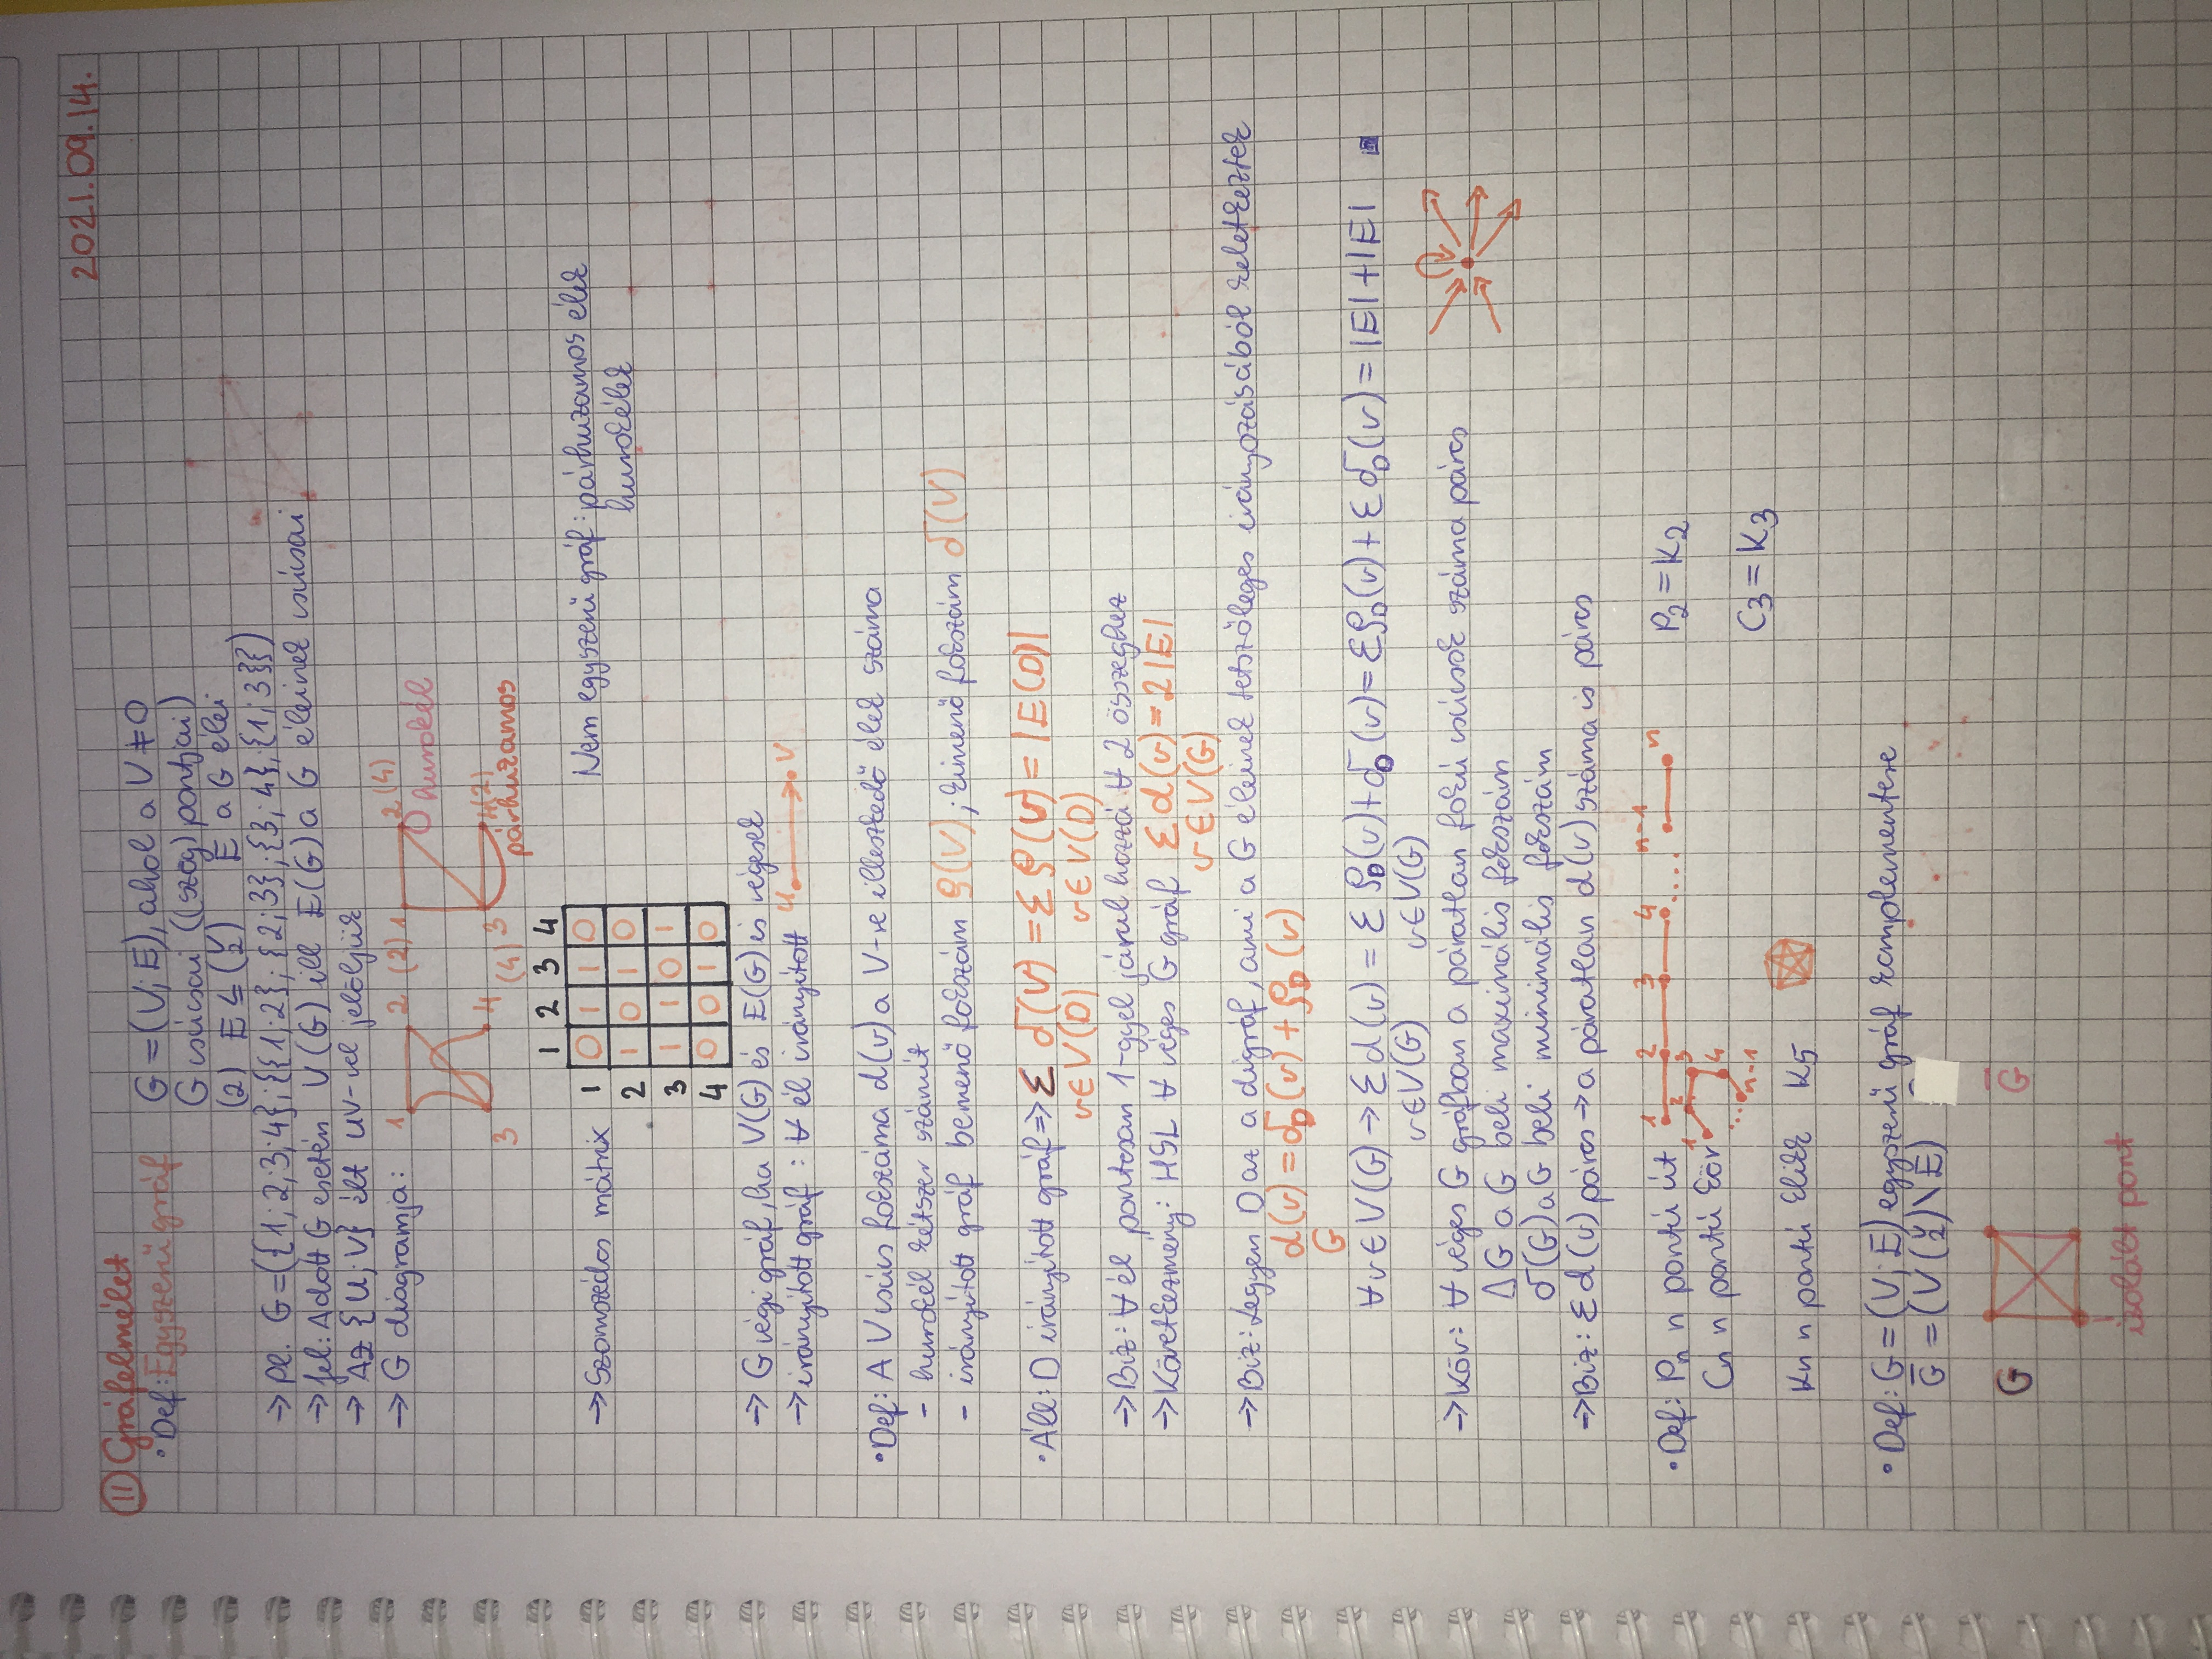 2021.09.14.
11 Gráfelmélet
• Def: Egyszerű gráf G = (V; E), ahol a V ≠ 0
G csúcsai ((szög) pontjai)
(2) E ⊆ (V 2) E a G élei
→ pl. G = ({1; 2; 3; 4}; {{1; 2}; {2; 3}; {3; 4}; {1; 3}})
→ jel: Adott G esetén V(G) ill E(G) a G éleinek csúcsai
→ Az {U; V} élt UV-vel jelöljük
→ G diagramja: 1 2 3 4 (2) 1 2 (4) (4) 3 4 (2)
hurokél
párhuzamos
1 2 3 4
→ Szomszédos mátrix 1 0 1 1 0
2 1 0 1 0
3 1 1 0 1
4 0 0 1 0
Nem egyszerű gráf: párhuzamos élek
hurokélek
→ G végi gráf, ha V(G) és E(G) is végesek
→ irányított gráf: ∀ él irányított u v
• Def: A V csúcs fokszáma d(v) a V-re illeszkedő élek száma
- hurokél kétszer számít
- irányított gráf bemenő fokszám ϱ(V); kimenő fokszám δ(V)
• Áll: D irányított gráf ⇒ Σ δ(v) = Σ ϱ(v) = |E(D)|
v∈V(D) v∈V(D)
→ Biz: ∀ él pontosan 1-gyel járul hozzá ∀ 2 összeghez
→ Következmény: HSL ∀ véges G gráf Σ d(v) = 2|E|
v∈V(G)
→ Biz: Legyen D az a digráf, ami a G éleinek tetszőleges irányozásából keletkeztek
d(v) = δD(v) + ϱD(v)
G
∀v∈V(G) → Σ d(v) = Σ ϱD(v) + δD(v) = Σ ϱD(v) + Σ δD(v) = |E| + |E| ■
v∈V(G) v∈V(G)
→ Köv: ∀ véges G gráfban a páratlan fokú csúcsok száma páros
ΔG a G beli maximális fokszám
δ(G) a G beli minimális fokszám
→ Biz: Σ d(v) páros → a páratlan d(v) száma is páros
• Def: Pn n pontú út 1 2 3 4 .... n-1 n P2 = K2
Cn n pontú kör 1 2 3 4 ... n-1
C3 = K3
Kn n pontú klikk K5
• Def: G = (V; E) egyszerű gráf komplementere
G̅ = (V (V 2) \ E)
G G̅
izolált pont